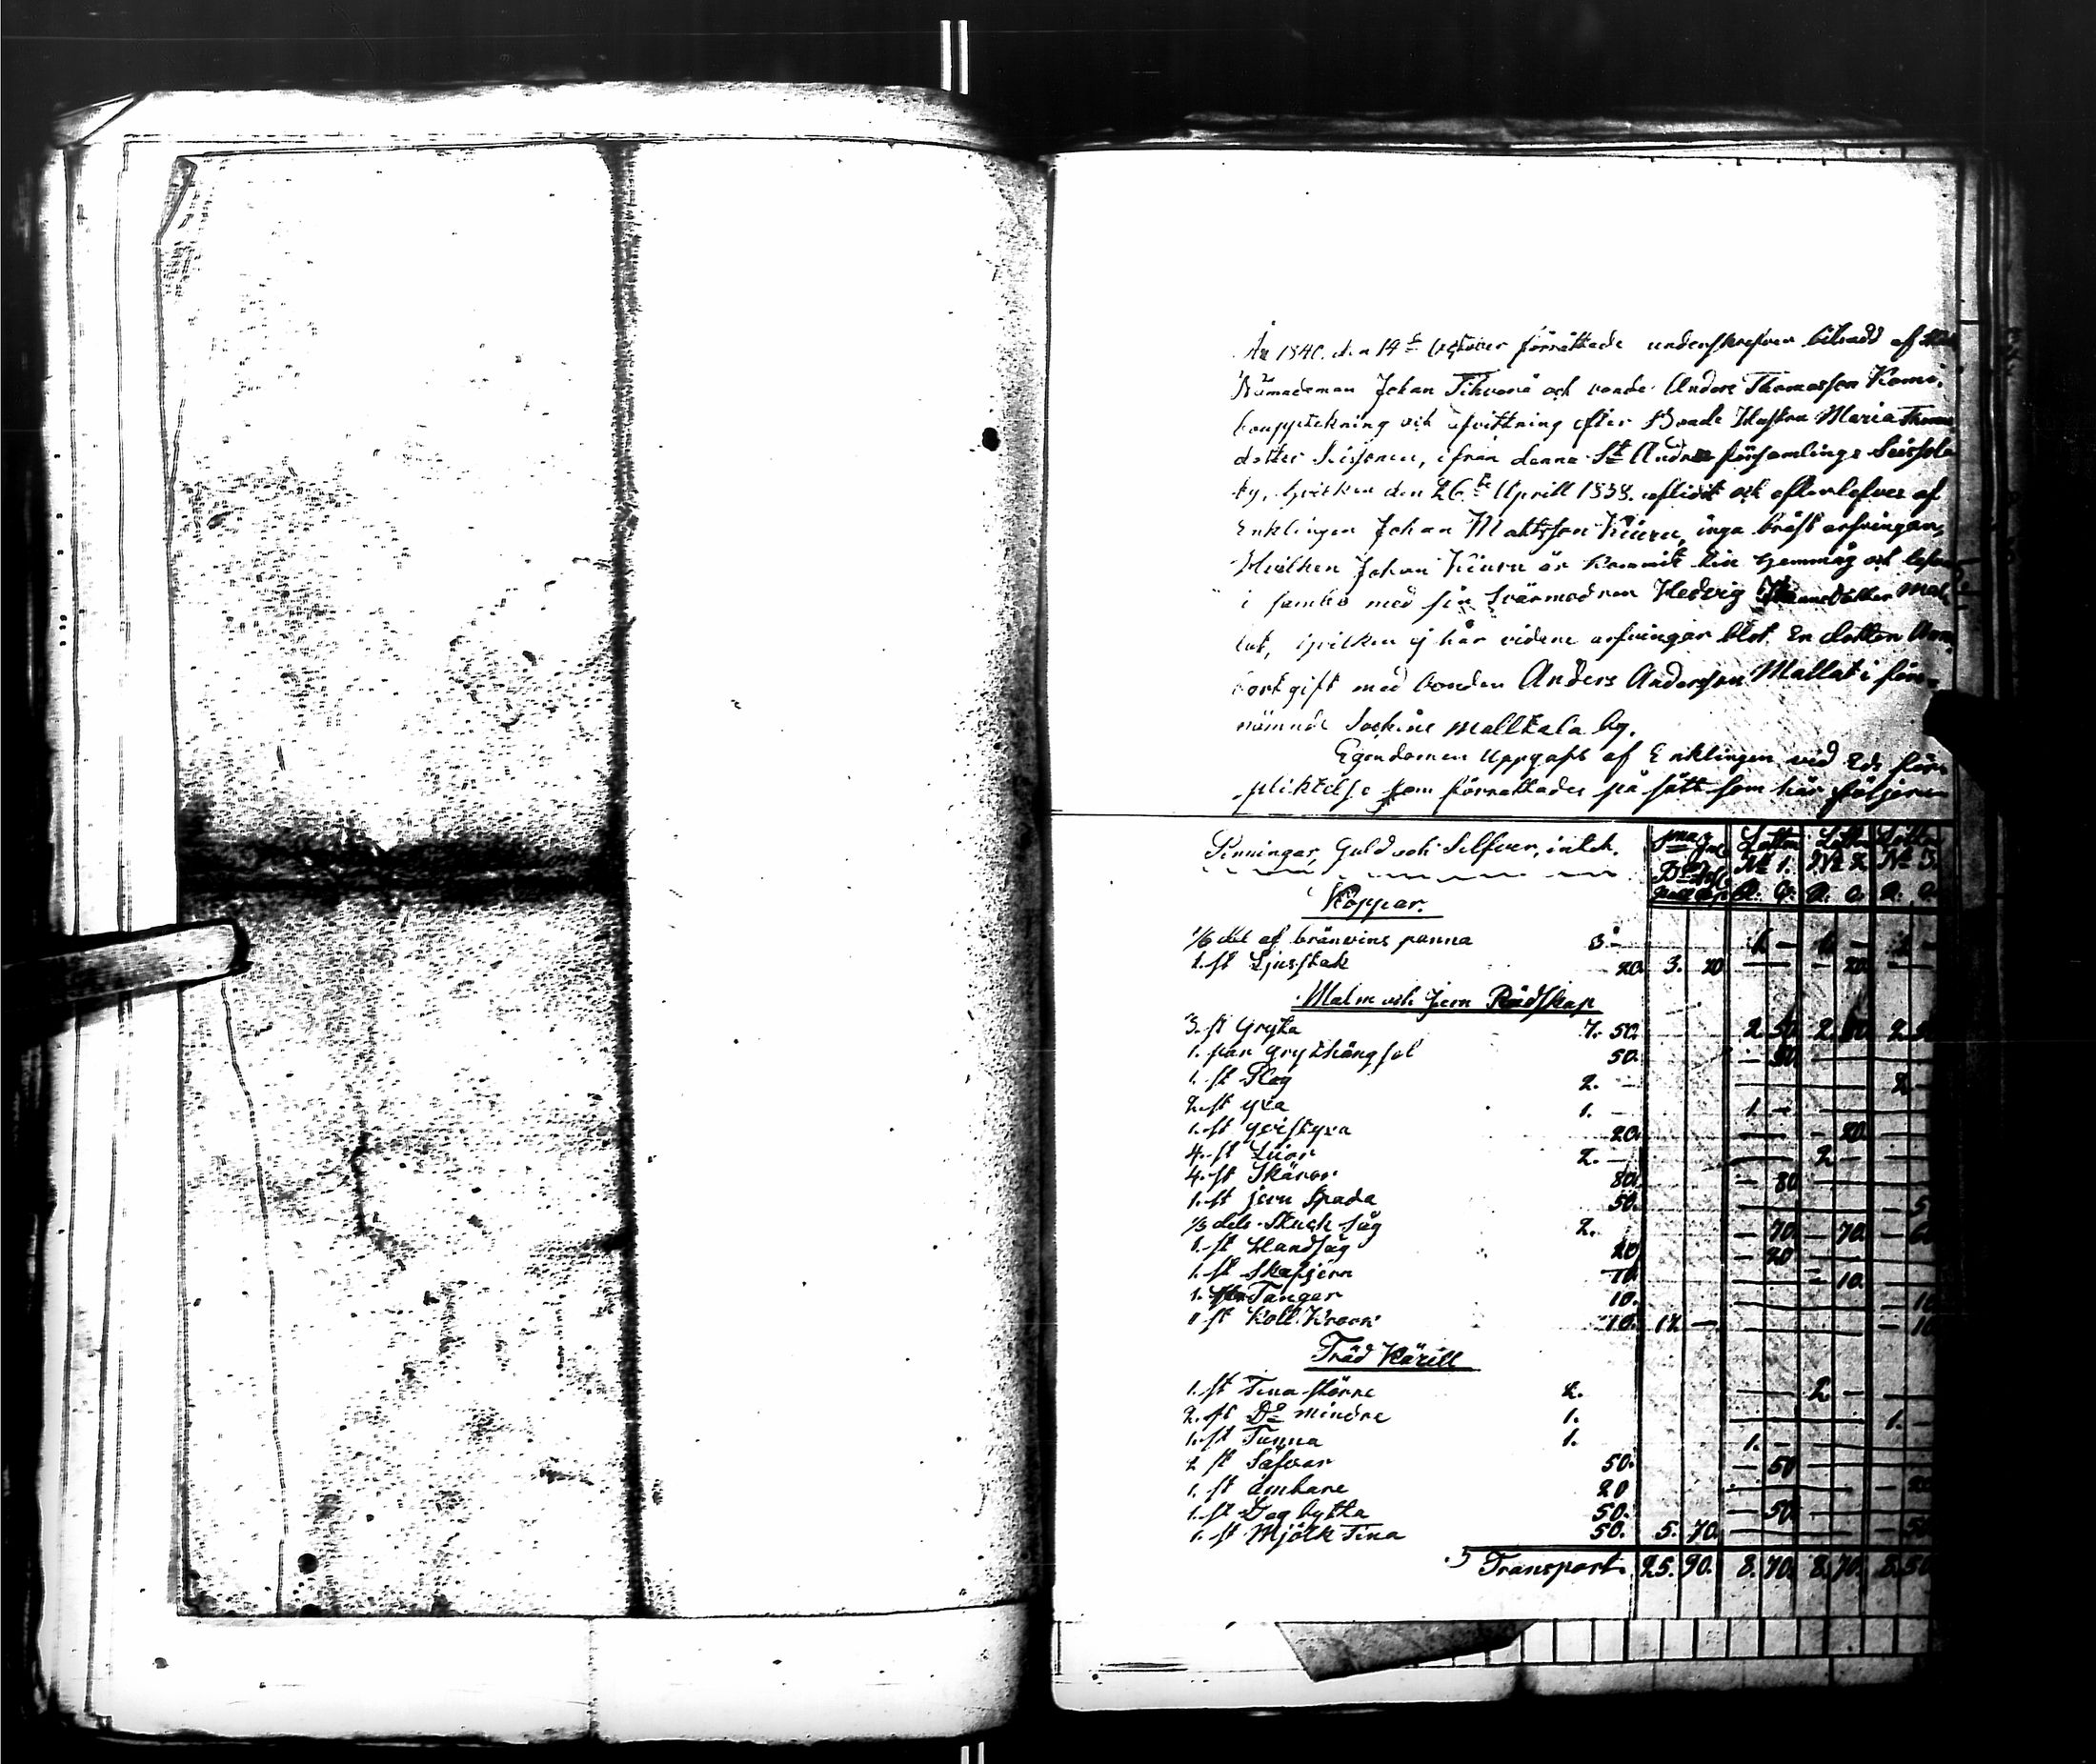 År 1840. den 14de October förrättade underskrefven biträdd af
Nämndeman Johan Tihvonè och bonde Anders Thomasson Komi,
bouppteckning och afvittring efter Bonde Hustrun Maria Thomas
dotter, ifrån denna St Andræ församlings
by, hvilken den 26te Aprill 1838. aflidit och efterlefves af
Enklingen Johan Mattsson Kiuru, inga bröst arfvingar,
Hvilken Johan Kiuru är kommit hemmåg och lefver
i sambo med sin Svärmodren Hedvig
lat, hvilken ej har vidare arfvingar blot. En dotter Ann
bortgift med bonden Anders Andersson Mallat i före
nämnde Sockens Mallkala by.
Egendomen uppgafs af Enklingen vid Eds för
pliktelse som förrättades på sätt som här följer
Penningar, Guld och Silfver, intet. Lotten Lotten Lotten
No 1. No 2. No 3.
Koppar.
1/6 del af bränvins panna 3.– 1 – 1 – 1 –
1. st Ljusstak 20. 3. 20 — — 20. —
Malm och Jern Rädskap
3. st Gryta 7. 50. 2. 50. 2. 50. 2. 50
1. par Grythängsel 50. – 50.
1. st Plog 2. – 2 –
2. st yxa 1. – 1. –
1. st qvistyxa 20. – 20.
4. st Liior 2. – 2 –
4. st Skäror 80. – 80.
1. st jern Spada 50. – 5
1/3 dels Stock såg 2. – 70. – 70. – 60
1. st Handsåg 20 – 20
1. st Skafjern 10. – 10.
1. Tänger 10. – 10
1 st Koll Krook 10. 12 – – 10
Träd Kärill
1. st Tina större 2. 2 –
2. st Do mindre 1. 1. –
1. st Tunna 1. 1. –
2 st Säfvar 50. – 50
1. st ämbare 20 – 20
1. st Deg bytta 50. – 50.
1. st Mjölk Tina 50. 5. 70. – 50
Transport 25. 90. 8. 70. 8. 70. 8. 50